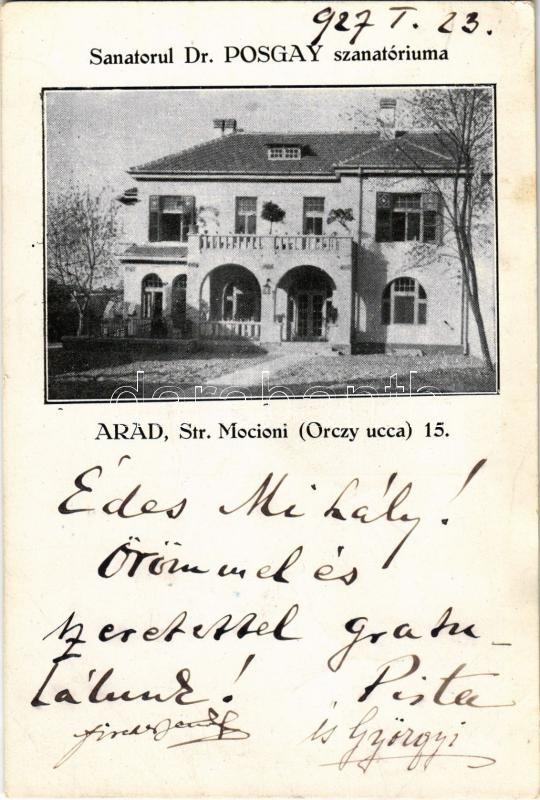 927 I. 23.
Sanatorul Dr. POSGAY szanatóriuma
darabanth
ARAD, Str. Mocioni (Orczy ucca) 15.
Édes Mihály!
Örömmel és
szeretettel gratu-
lálunk! Pista
és Györgyi